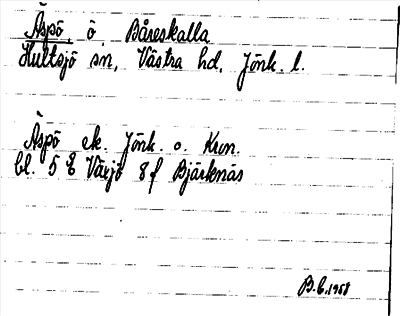 Äspö, ö, Båreskalla
Hultsjö sn, Västra hd, Jönk. l.
Äspö ek. Jönk. o. Kron.
bl. 5 E Växjö 8 f Bjärknäs
B.E. 1958